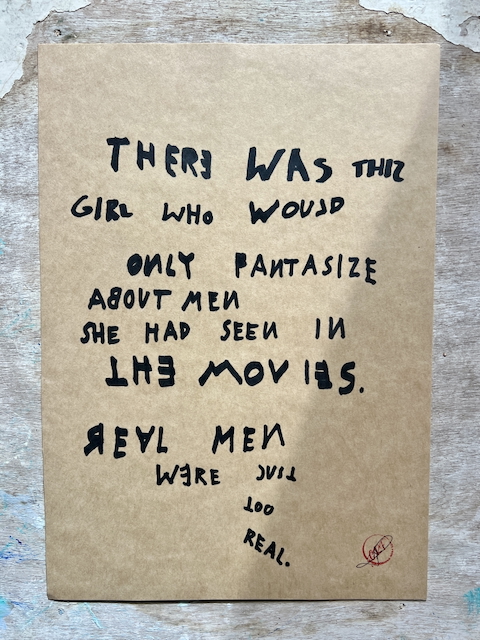 THERE WAS THIS
GIRL WHO WOULD
ONLY FANTASIZE
ABOUT MEN
SHE HAD SEEN IN
THE MOVIES.
REAL MEN
WERE JUST
TOO
REAL.